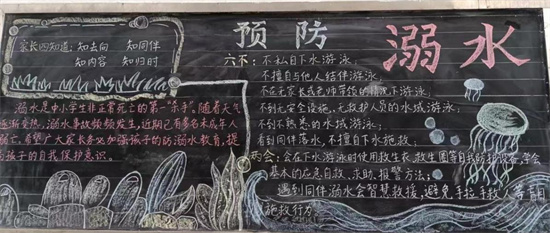 家长四知道：知去向 知同伴
知内容 知归时
溺水是中小学生非正常死亡的第一"杀手"，随着天气
逐渐变热，溺水事故频频发生，近期已有多名未成年人
亡，希望广大家长务必加强孩子的防溺水教育，提
孩子的自我保护意识。
预防溺水
六不：不私自下水游泳；
不擅自与他人结伴游泳；
不在无家长或老师带领的情况下游泳；
不到无安全设施、无救护人员的水域游泳；
不到不熟悉的水域游泳；
看到同伴落水，不擅自下水施救；
两会：会在下水游泳时使用救生衣、救生圈等自我防护设备，学会
基本的应急自救、求助、报警方法；
遇到同伴溺水会智慧救援，避免"手拉手救人"等盲目
施救行为。